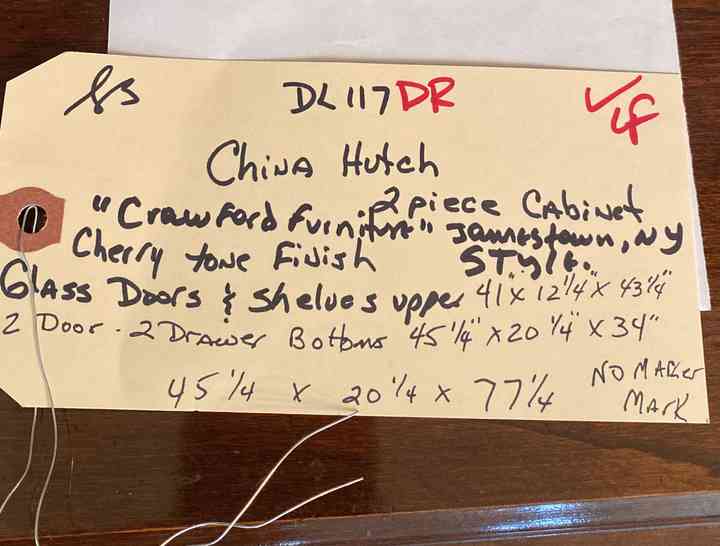 DL117DR ✓
China Hutch
2 piece Cabinet
"Crawford Furniture" Jamestown, NY
Cherry tone Finish STyle.
Glass Doors & Shelves upper 41" x 12 1/4" x 43 1/4"
2 Door - 2 Drawer Bottoms 45 1/4" x 20 1/4" x 34"
45 1/4 x 20 1/4 x 77 1/4
NO MAKer MArk